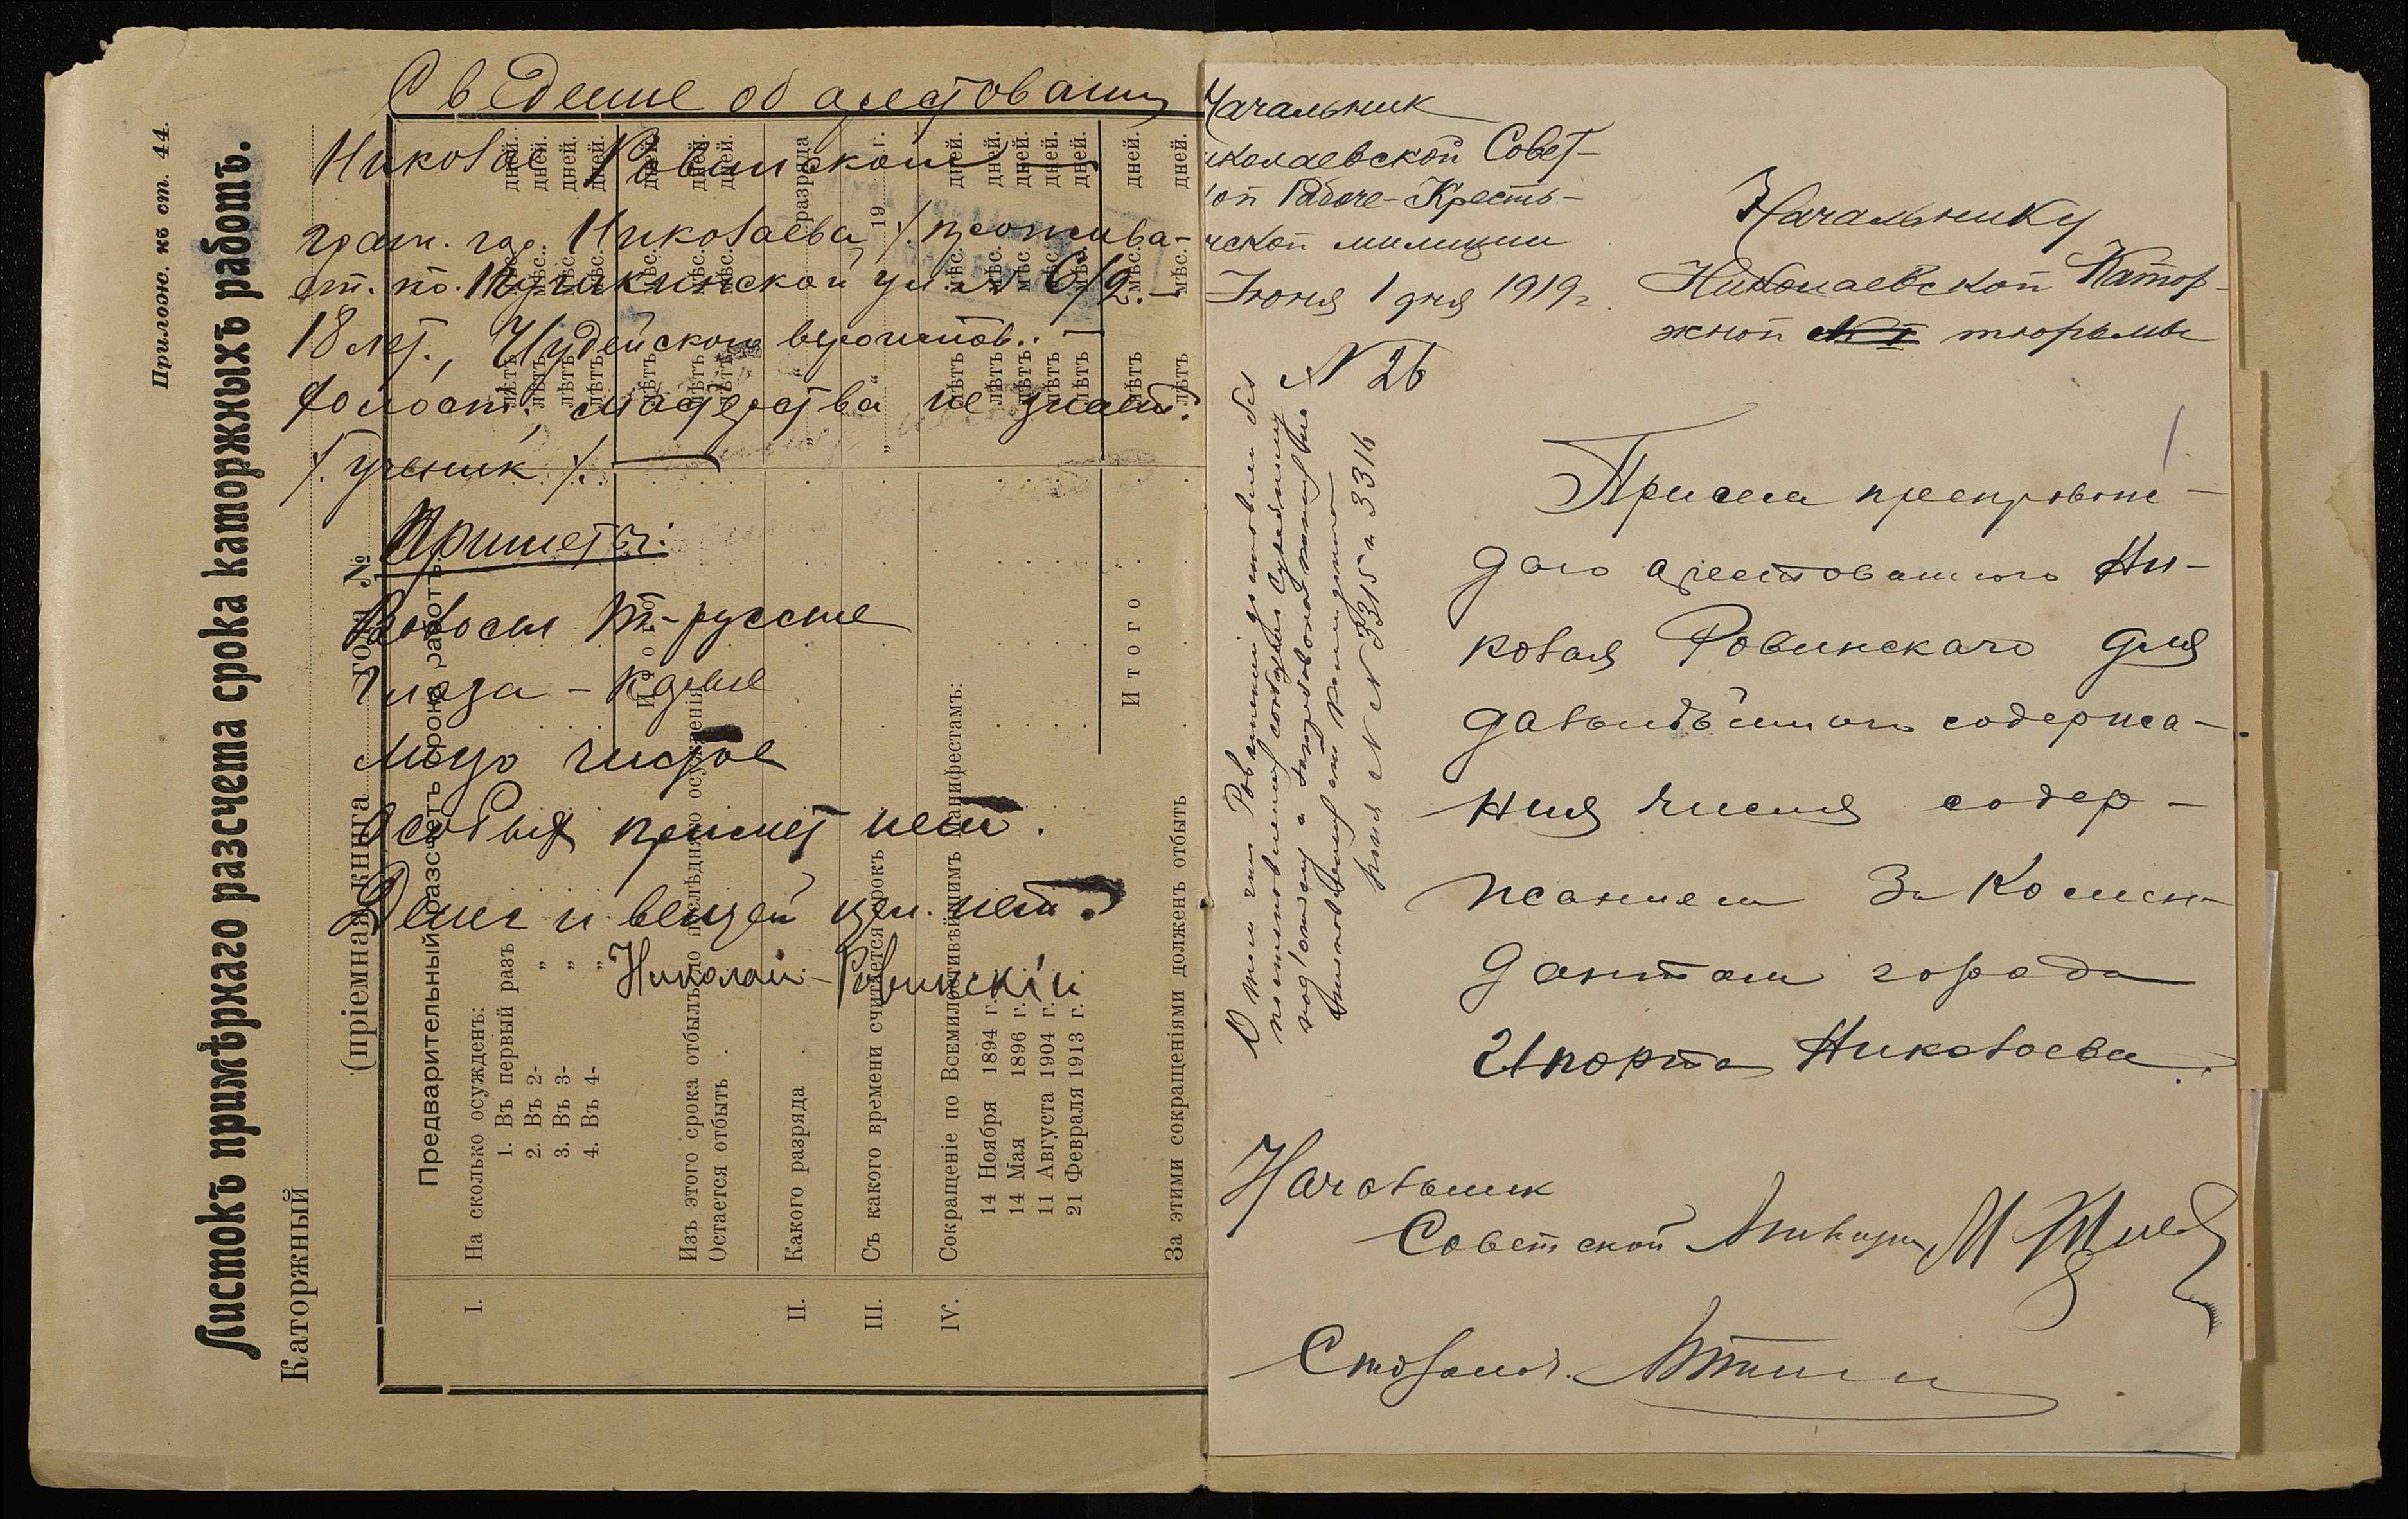 Сведение об арестовании
Николае Ровинском
граж. гор. Николаева, /. прожива-
ет. по. Пушкинской ул. № 6/2. —
18 лет., Иудейского вероиспов.. —
Холост, мастерства не знает.
/. ученик /. —
Приметы:
Волосы т-русые
Глаза – карие
Лицо чистое
Особых примет нет.
Денег и вещей цен. нет.
Николай Ровинскій
Прилож. къ ст. 44.
Листокъ примѣрнаго разсчета срока каторжныхъ работъ.
Каторжный
(пріемная книга тома №
Предварительный разсчетъ срока работъ.
I. На сколько осужденъ:
1. Въ первый разъ лѣтъ мѣс. дней.
2. Въ 2- „ лѣтъ мѣс. дней.
3. Въ 3- „ лѣтъ мѣс. дней.
4. Въ 4- „ лѣтъ мѣс. дней.
Итого лѣтъ мѣс. дней.
Изъ этого срока отбылъ до послѣдняго осужденія лѣтъ мѣс. дней.
Остается отбыть лѣтъ мѣс. дней.
II. Какого разряда „ “ разряда
III. Съ какого времени считается срокъ „ “ 19 г.
IV. Сокращеніе по Всемилостивѣйшимъ Манифестамъ: лѣтъ мѣс. дней.
14 Ноября 1894 г. лѣтъ мѣс. дней.
14 Мая 1896 г. лѣтъ мѣс. дней.
11 Августа 1904 г. лѣтъ мѣс. дней.
21 Февраля 1913 г. лѣтъ мѣс. дней.
Итого лѣтъ мѣс. дней.
За этими сокращеніями долженъ отбыть лѣтъ мѣс. дней.
Начальник
иколаевской Совет-
ой Рабоче-Кресть-
нской милиции
Июня 1 дня 1919 г.
N 26
О том что Ровинский
Судебному
N N 3315 и 3316
Начальнику
Николаевской Катор-
жной № 1 тюрьмы
При сем препровож-
даю арестованного Ни-
колая Ровинскаго для
дальнѣйшаго содержа-
ния числя содер-
жанием За Комен-
дантом города
И порта Николаева.
Начальник
Советской Милиции
Столонач.